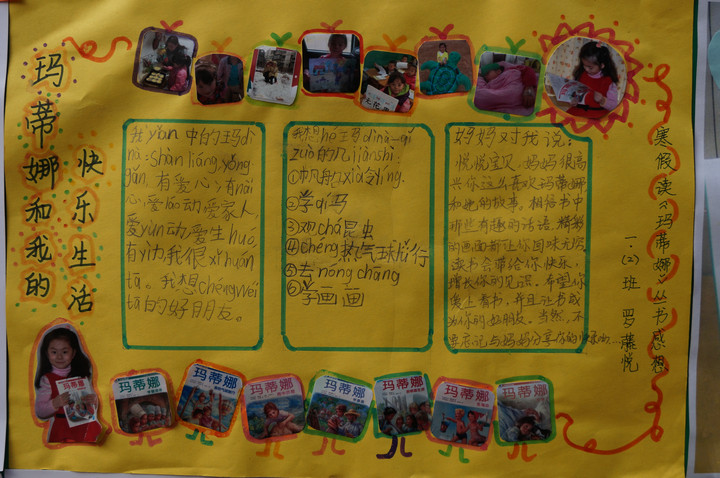 玛蒂娜和我的
快乐生活
我yuàn 中的玛dì
nà:shàn liáng,yǒng
gǎn,有爱心,有nài
心,爱láo动,爱家人,
爱yùn动,爱生huó,
有yì力,我很xǐhuān
tā。我想chéngwéi
tā的好朋友。
我想hé玛dìnà一qǐ
zuò的几jiànshì:
①帆船xiàlìng。
②学qí马
③观chá昆虫
④chéng热气球lǚ行
⑤去nóng chǎng
⑥学画画
妈妈对我说:
悦悦宝贝,妈妈很高
兴你这么喜欢玛蒂娜
和她的故事。相信书中
那些有趣的话语、精彩
的画面都让你回味无穷
读书会带给你快乐,
增长你的见识。希望你
爱上看书,并且让书成
为你的好朋友。当然,不
要忘记与妈妈分享你的快乐哟...
寒假读《玛蒂娜》丛书感想
一.(2)班 罗 悦
玛蒂娜
玛蒂娜
玛蒂娜
玛蒂娜
玛蒂娜
玛蒂娜
玛蒂娜
玛蒂娜